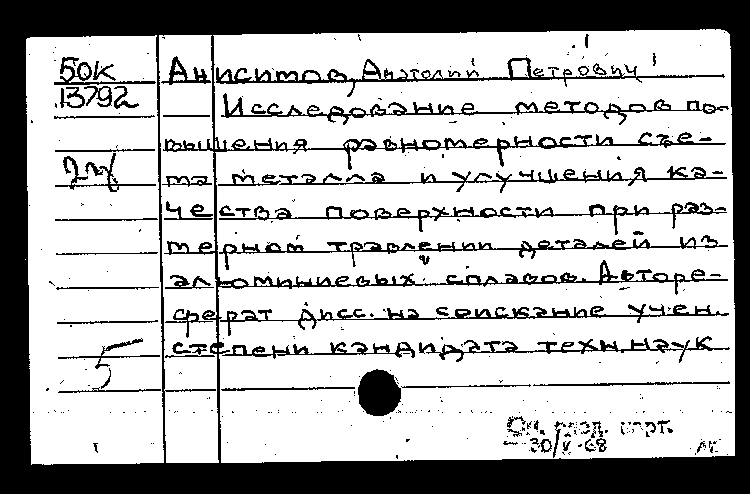 50к
13792
Анисимов, Анатолий Петрович
Исследование методов по-
вышения равномерности съе-
ма металла и улучшения ка-
чества поверхности при раз-
мерном травлении деталей из
алюминиевых сплавов. Авторе-
ферат дисс. на соискание учен.
степени кандидата техн. наук
5
См. след. карт.
30/V-68